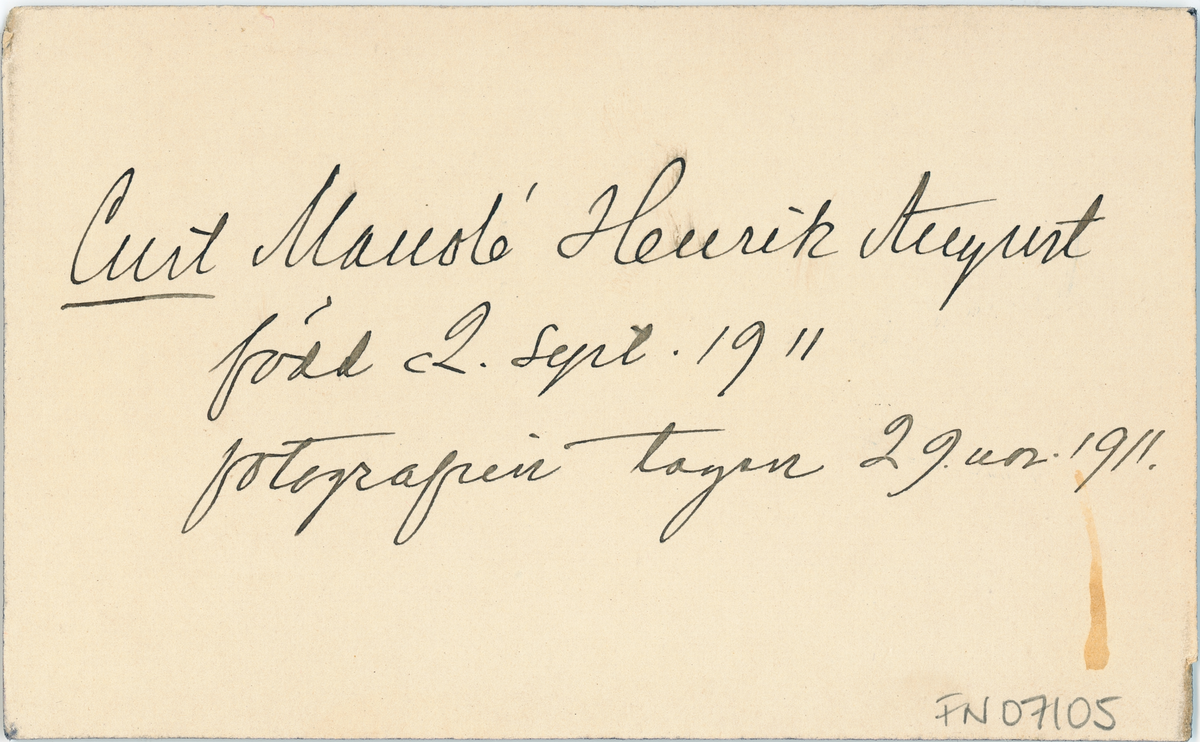 Curt Maudé Henrik August
född 2. Sept. 1911
fotografien tagen 29. nov. 1911.
FN07105